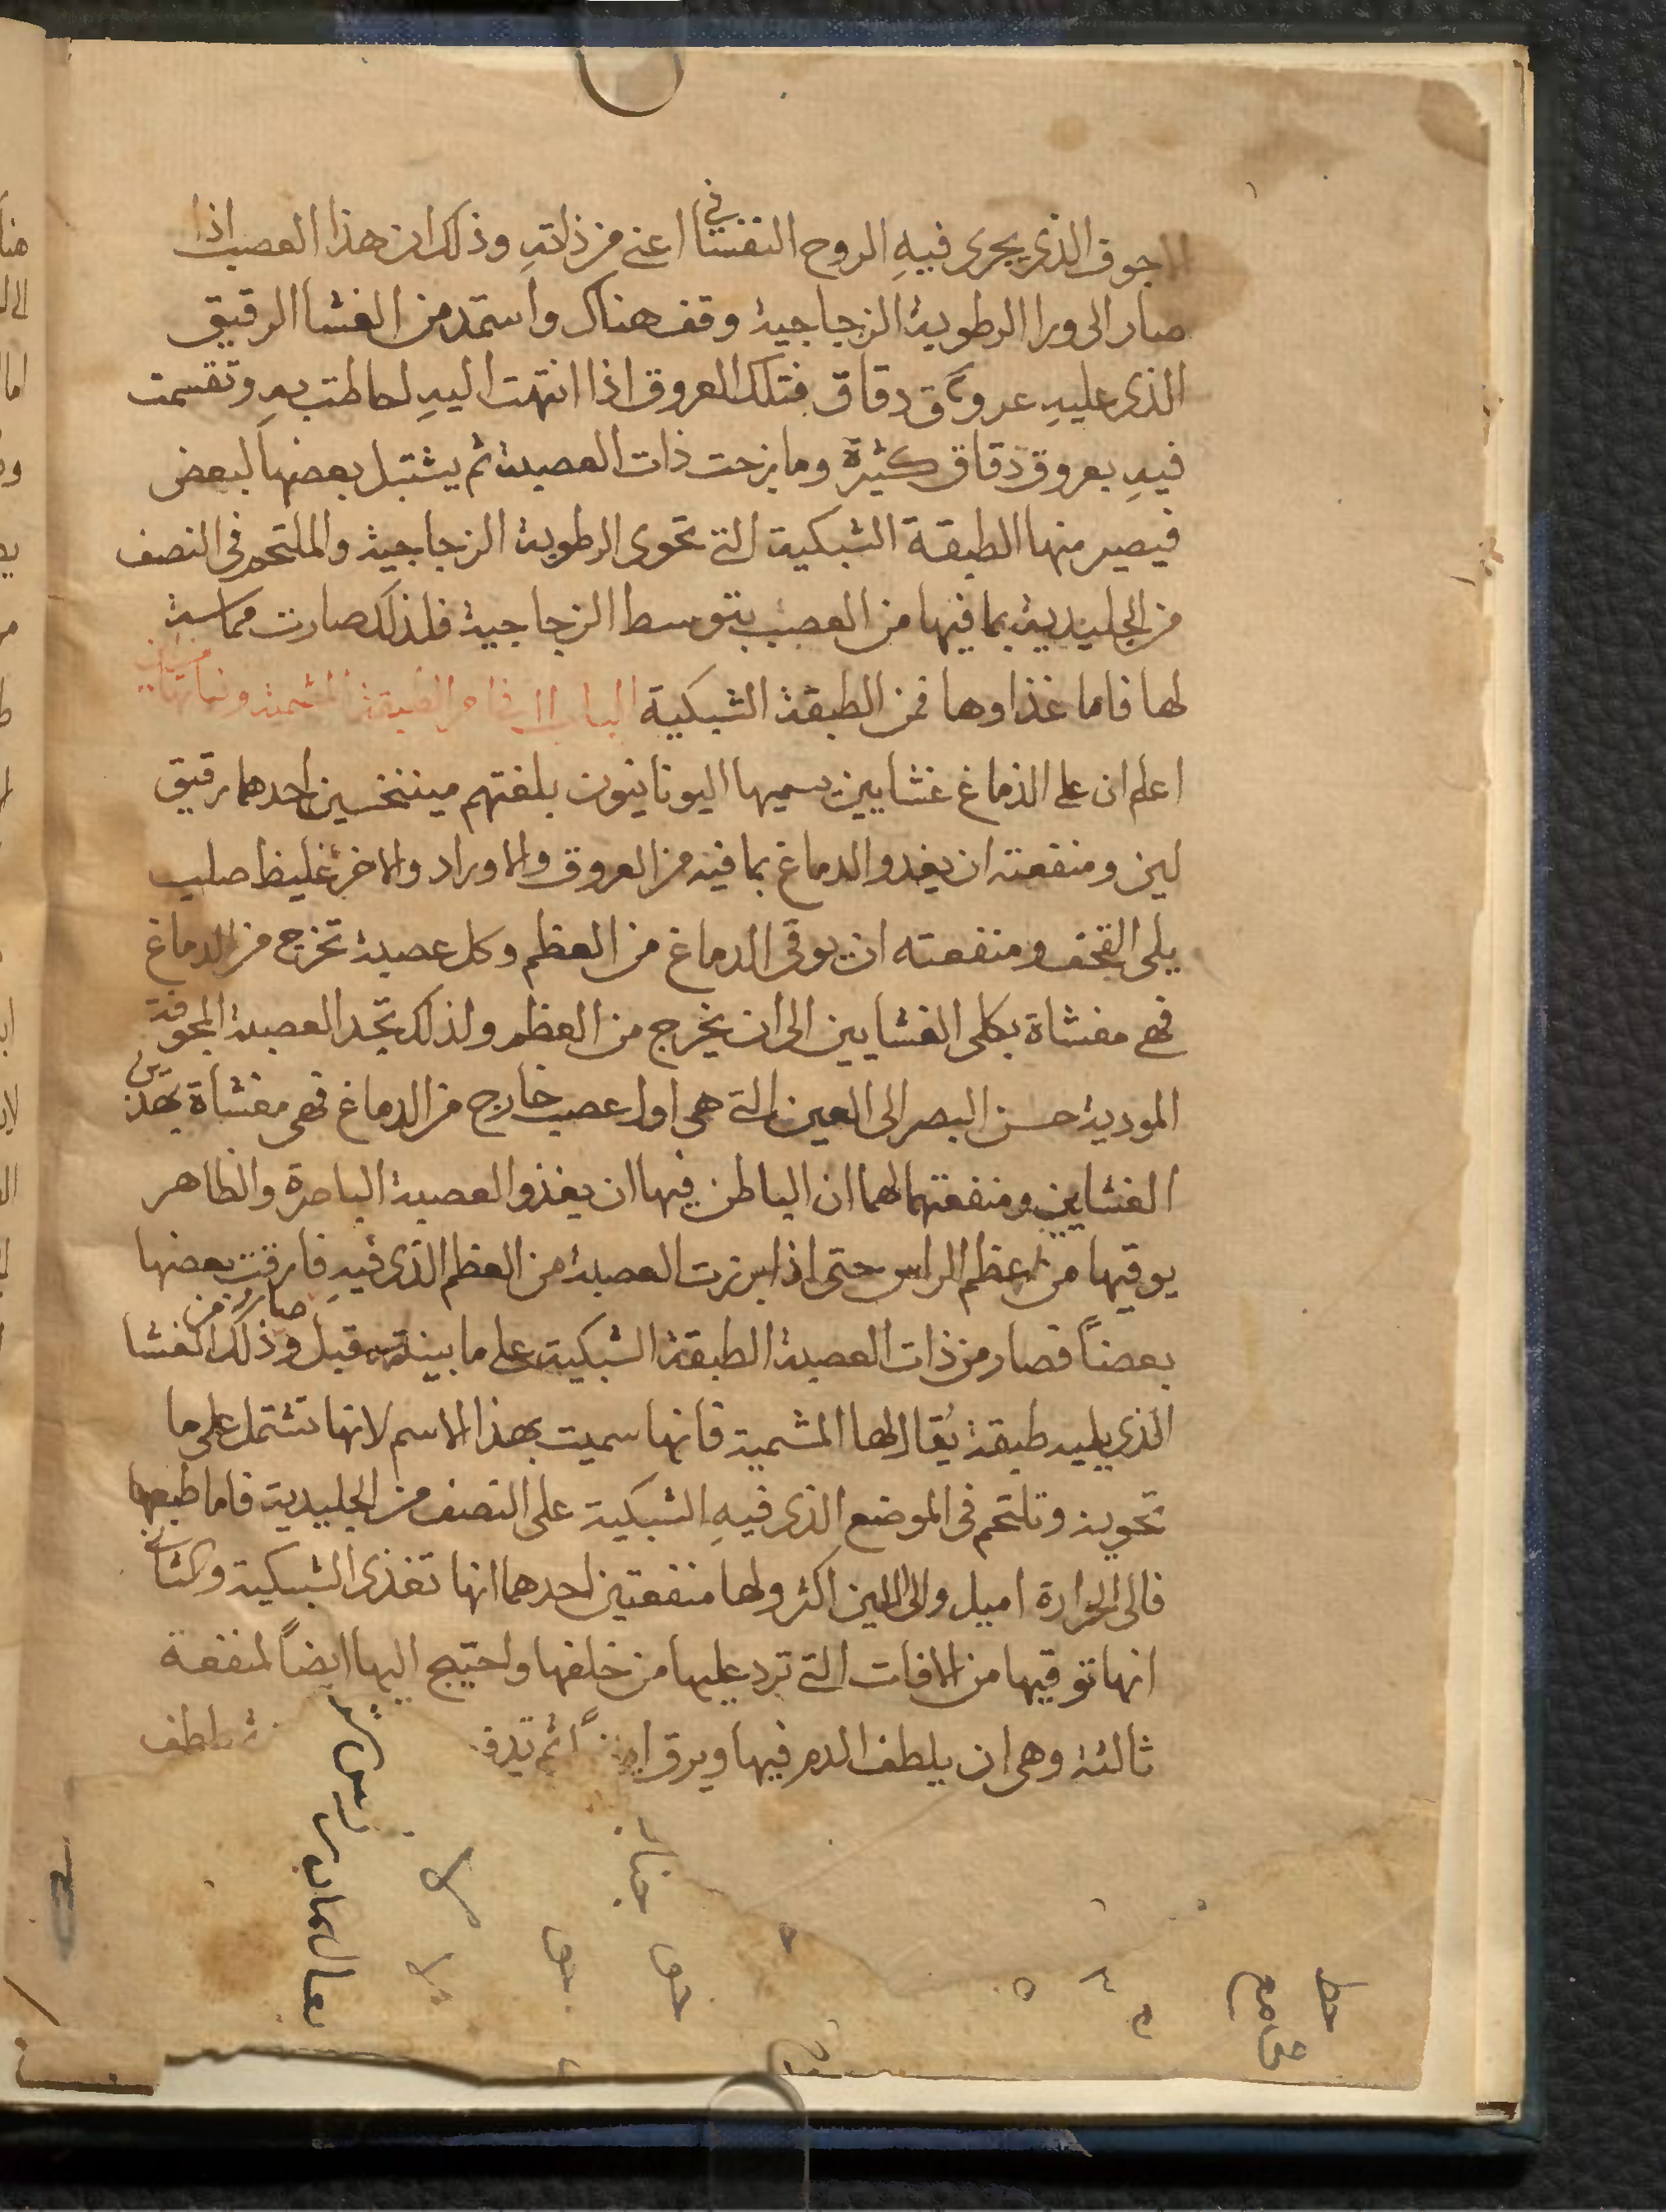 الاجوف الذى يجرى فيهِ الروح النفسانى اعنى من ذاتهِ وذلك ان هذا العصب اذا
صار الى ورا الرطوبة الزجاجية وقف هناك واستمد من الغشا الرقيق
الذى عليهِ عروق دقاق فتلك العروق اذا انتهت اليهِ احاطت بهِ وتقسمت
فيهِ بعروق دقاق كثيرة ومازجت ذات العصبة ثم يشتبك بعضهاً لبعض
فيصير منها الطبقة الشبكية التى تحوى الرطوبة الزجاجية والملتحم فى النصف
من الجليدية بما فيها من العصب بتوسط الزجاجية فلذلك صارت مماسة
لها فاما غذاوها فمن الطبقة الشبكية الباب فى الطبقة المشمية ونباتها
اعلم ان على الدماغ غشايين يسميها اليونانيون بلغتهم مينخسين احدهما رقيق
لين ومنفعته ان يغدو الدماغ بما فيه من العروق والاوراد والاخر غليظ صلب
يلى القحف ومنفعته ان يوقى الدماغ من العظم وكل عصبة تخرج من الدماغ
فهى مغشاة بكلى الغشايين الى ان يخرج من العظم ولذلك تجد العصبة المجوفة
المودية حسن البصر الى العين التى هى اول عصب خارج من الدماغ فهى مغشاة بهذين
الغشاين ومنفعتهما لهما ان الباطن فيها ان يغذو العصبة الباصرة والظاهر
يوقيها من عظم الراس حتى اذا برزت العصبة من العظم الذى فيهِ فارقت بعضها
بعضاً فصار من ذات العصبة الطبقة الشبكية على ما بينته قبل وذلك صار من الغشا
الذى يليه طبقة يُقال لها المشمية فانها سميت بهذا الاسم لانها تشتمل على ما
تحويه وتلتحم فى الموضع الذى فيهِ الشبكية على النصف من الجليدية فاما طبعها
فالى الحرارة اميل والى اللين اكثر ولها منفعتين احدهما انها تغذى الشبكية والثانى
انها توقيها من الافات التى ترد عليها من خلفها واحتيج اليها ايضاً لمنفعة
ثالثة وهى ان يلطف الدم فيها ويرق ثم تدفـ